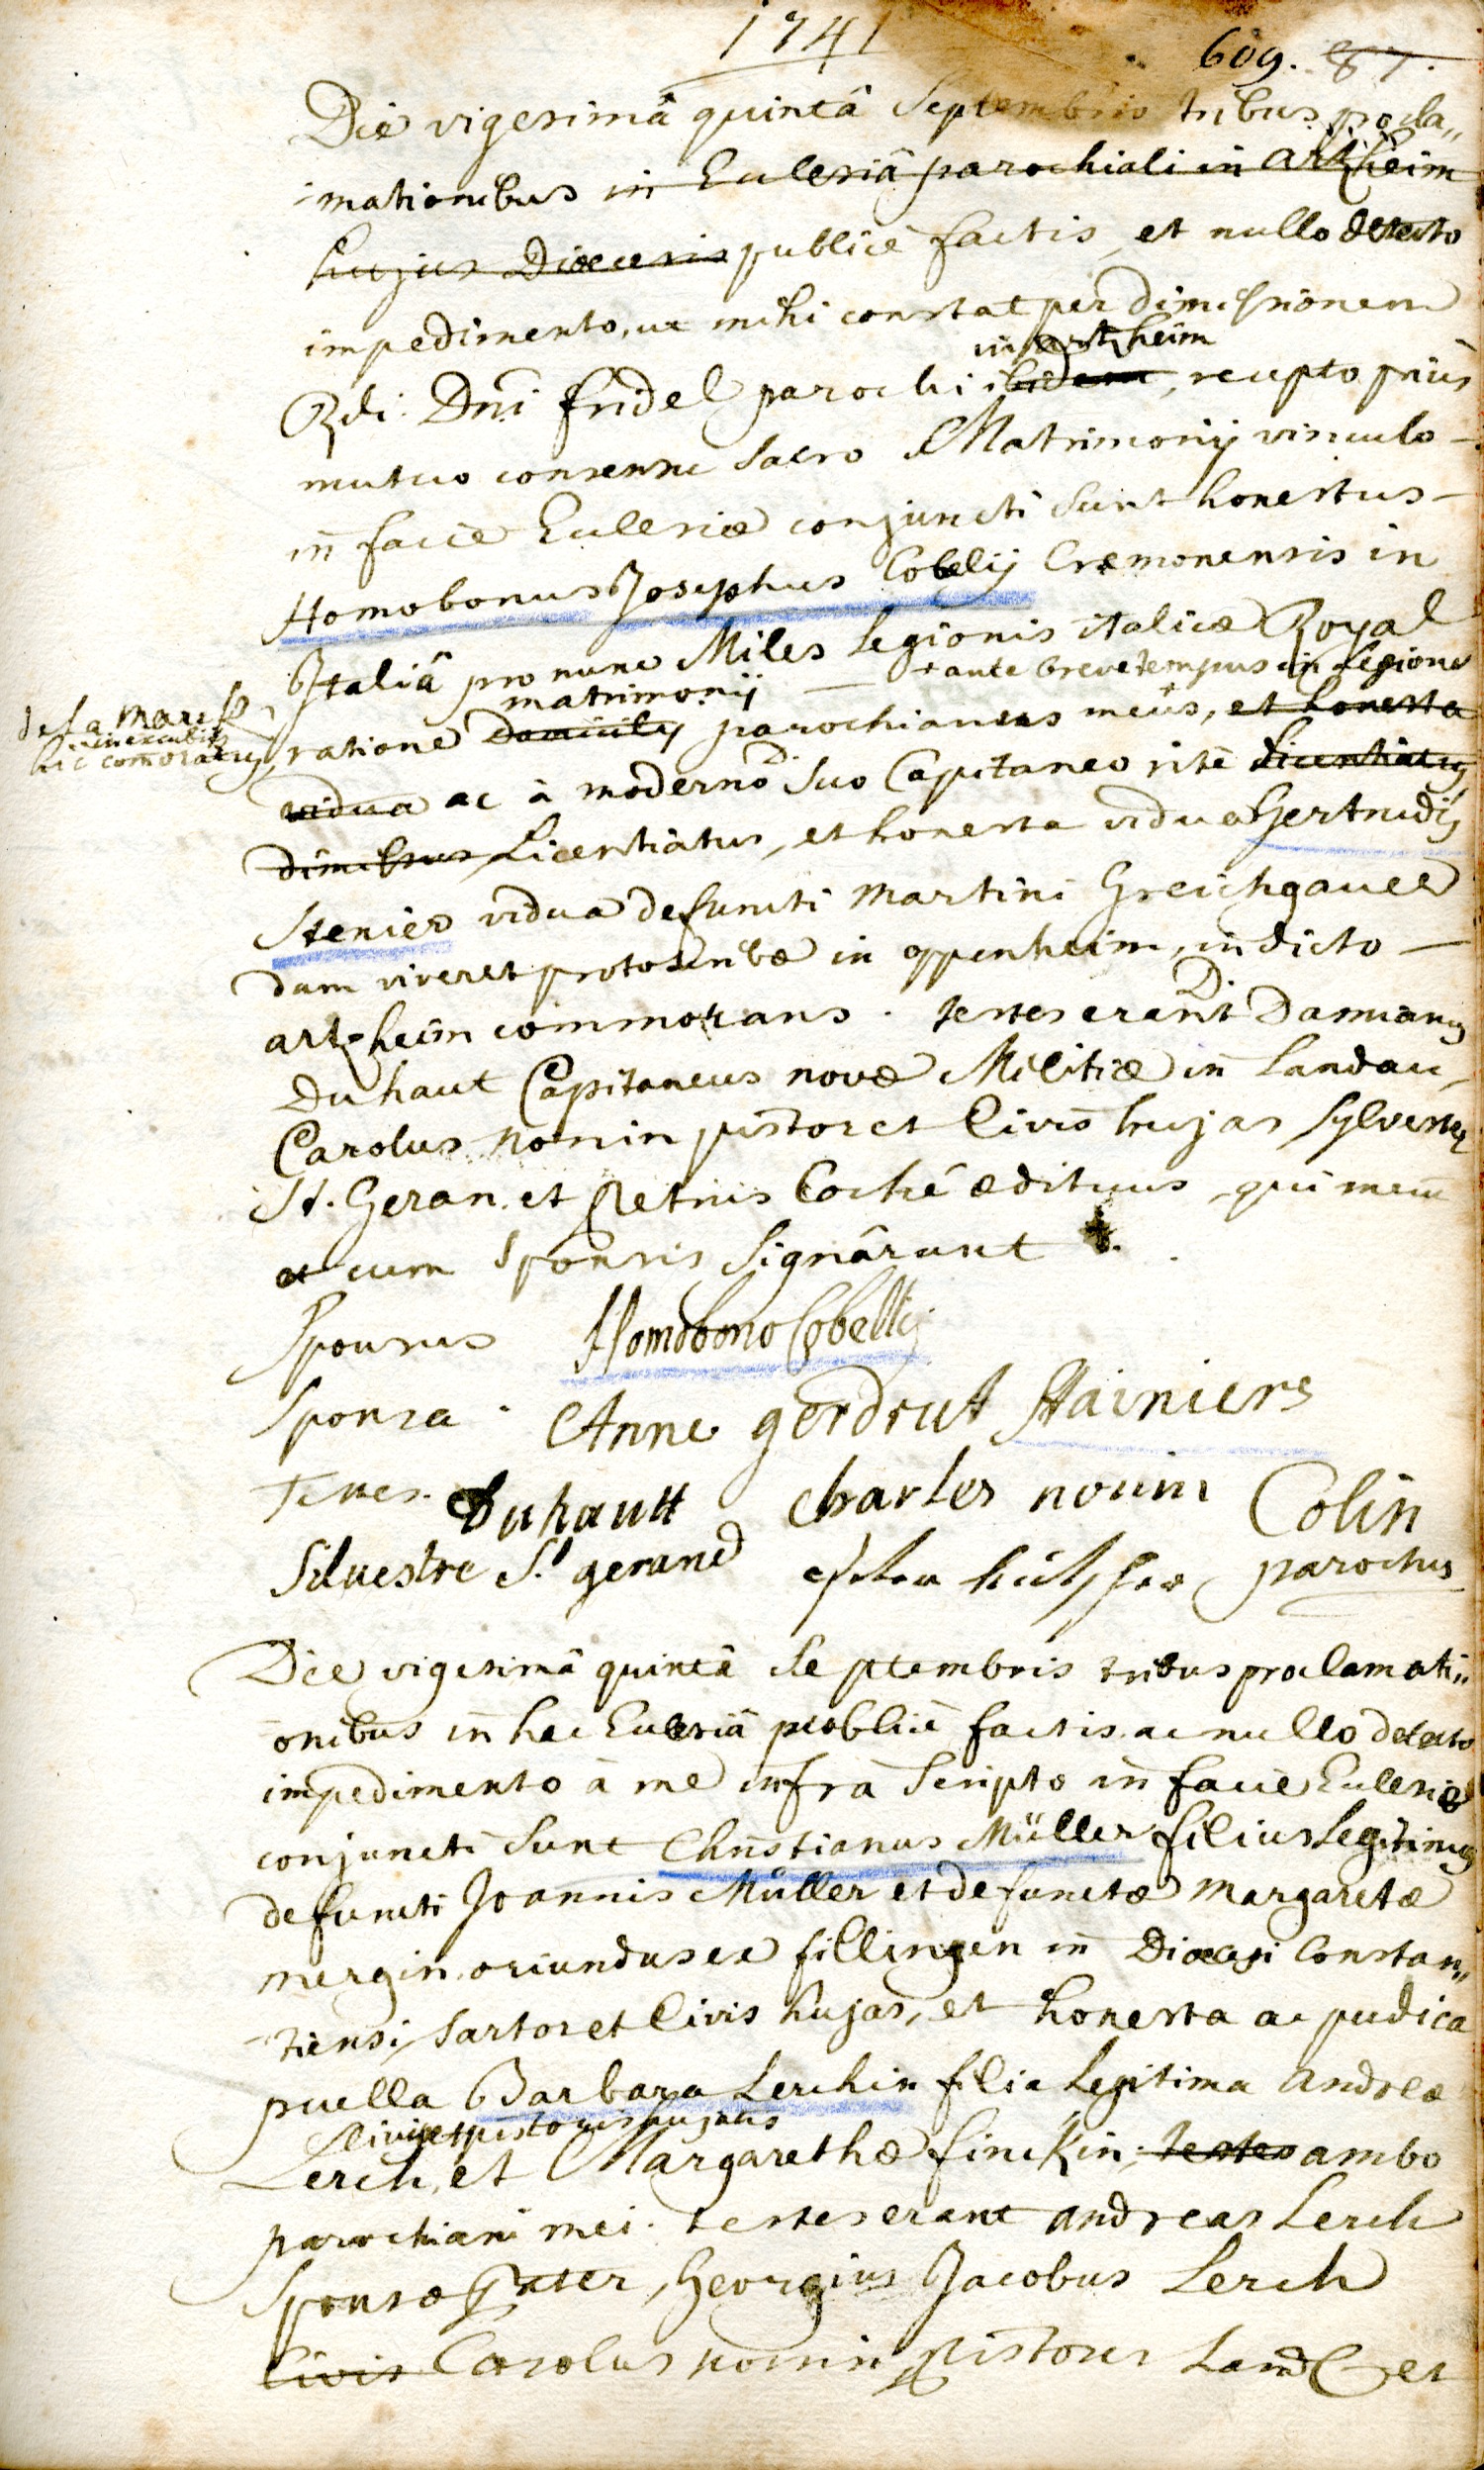 1741
609. 87.
Die vigesimâ quintâ Septembris tribus procla„
mationibus in Ecclesiâ parochiali in artzheim
hujus Dioecesis publicè factis, et nullo detecto
impedimento, ut mihi constat per dimissionem
in artzheim
Rdi. Dni fridel parochi ibidem, recepto priùs
mutuo consensu Sacro Matrimonij vinculo
in facie Ecclesiæ conjuncti sunt honestus
Homobonus Josephus Cobelij Cremonensis in
Italiâ pro nunc Miles Legionis italicæ Royal
+ ante breve tempus in Legione
de la Marck
in excubijs
hic comorans
matrimonij
ratione Domicilij parochianus meus,+ et honesta
vidua ac à moderno D. Suo Capitaneo ritè Licentiatus
dimissus Licentiatus, et honesta vidua Gertrudis
Stenier vidua defuncti Martini Greichgauer
dum viveret protoscribæ in oppenheim, in dicto
artzheim commorans. testes erant D. Damianus
Duhaut Capitaneus novæ Militiæ in Landau,
Carolus Nonnin pistor et Civis hujas, Sylvester
St. Geran. et Petrus Coché ædituus qui mecum
et cum Sponsis Signârunt
Sponsus Homobono Cobellij
Sponsa. Anne gerdrut Stainiers
Testes. Duhautt charles nonin Colin
Siluestre St gerand parochus
Die vigesimâ quintâ Septembris tribus proclamati„
onibus in hac Ecclesiâ publicè factis ac nullo detecto
impedimento à me infrà Scripto in facie Ecclesiæ
conjuncti Sunt Christianus Müller filius Legitimus
defuncti Joannis Müller et defunctæ Margaretæ
mergin, oriundus ex fillingen in Dioecesi Constan„
tiensi, Sartor et Civis hujas, et honesta ac pudica
puella Barbara Lerchin filia Legitima Andreæ
Civis et pistoris hujatis
Lerch, et Margarethæ finckin, testes ambo
parochiani mei. testes erant Andreas Lerch
Sponsæ Pater, Georgius Jacobus Lerch
Civis Carolus nonnin Pistores Land et